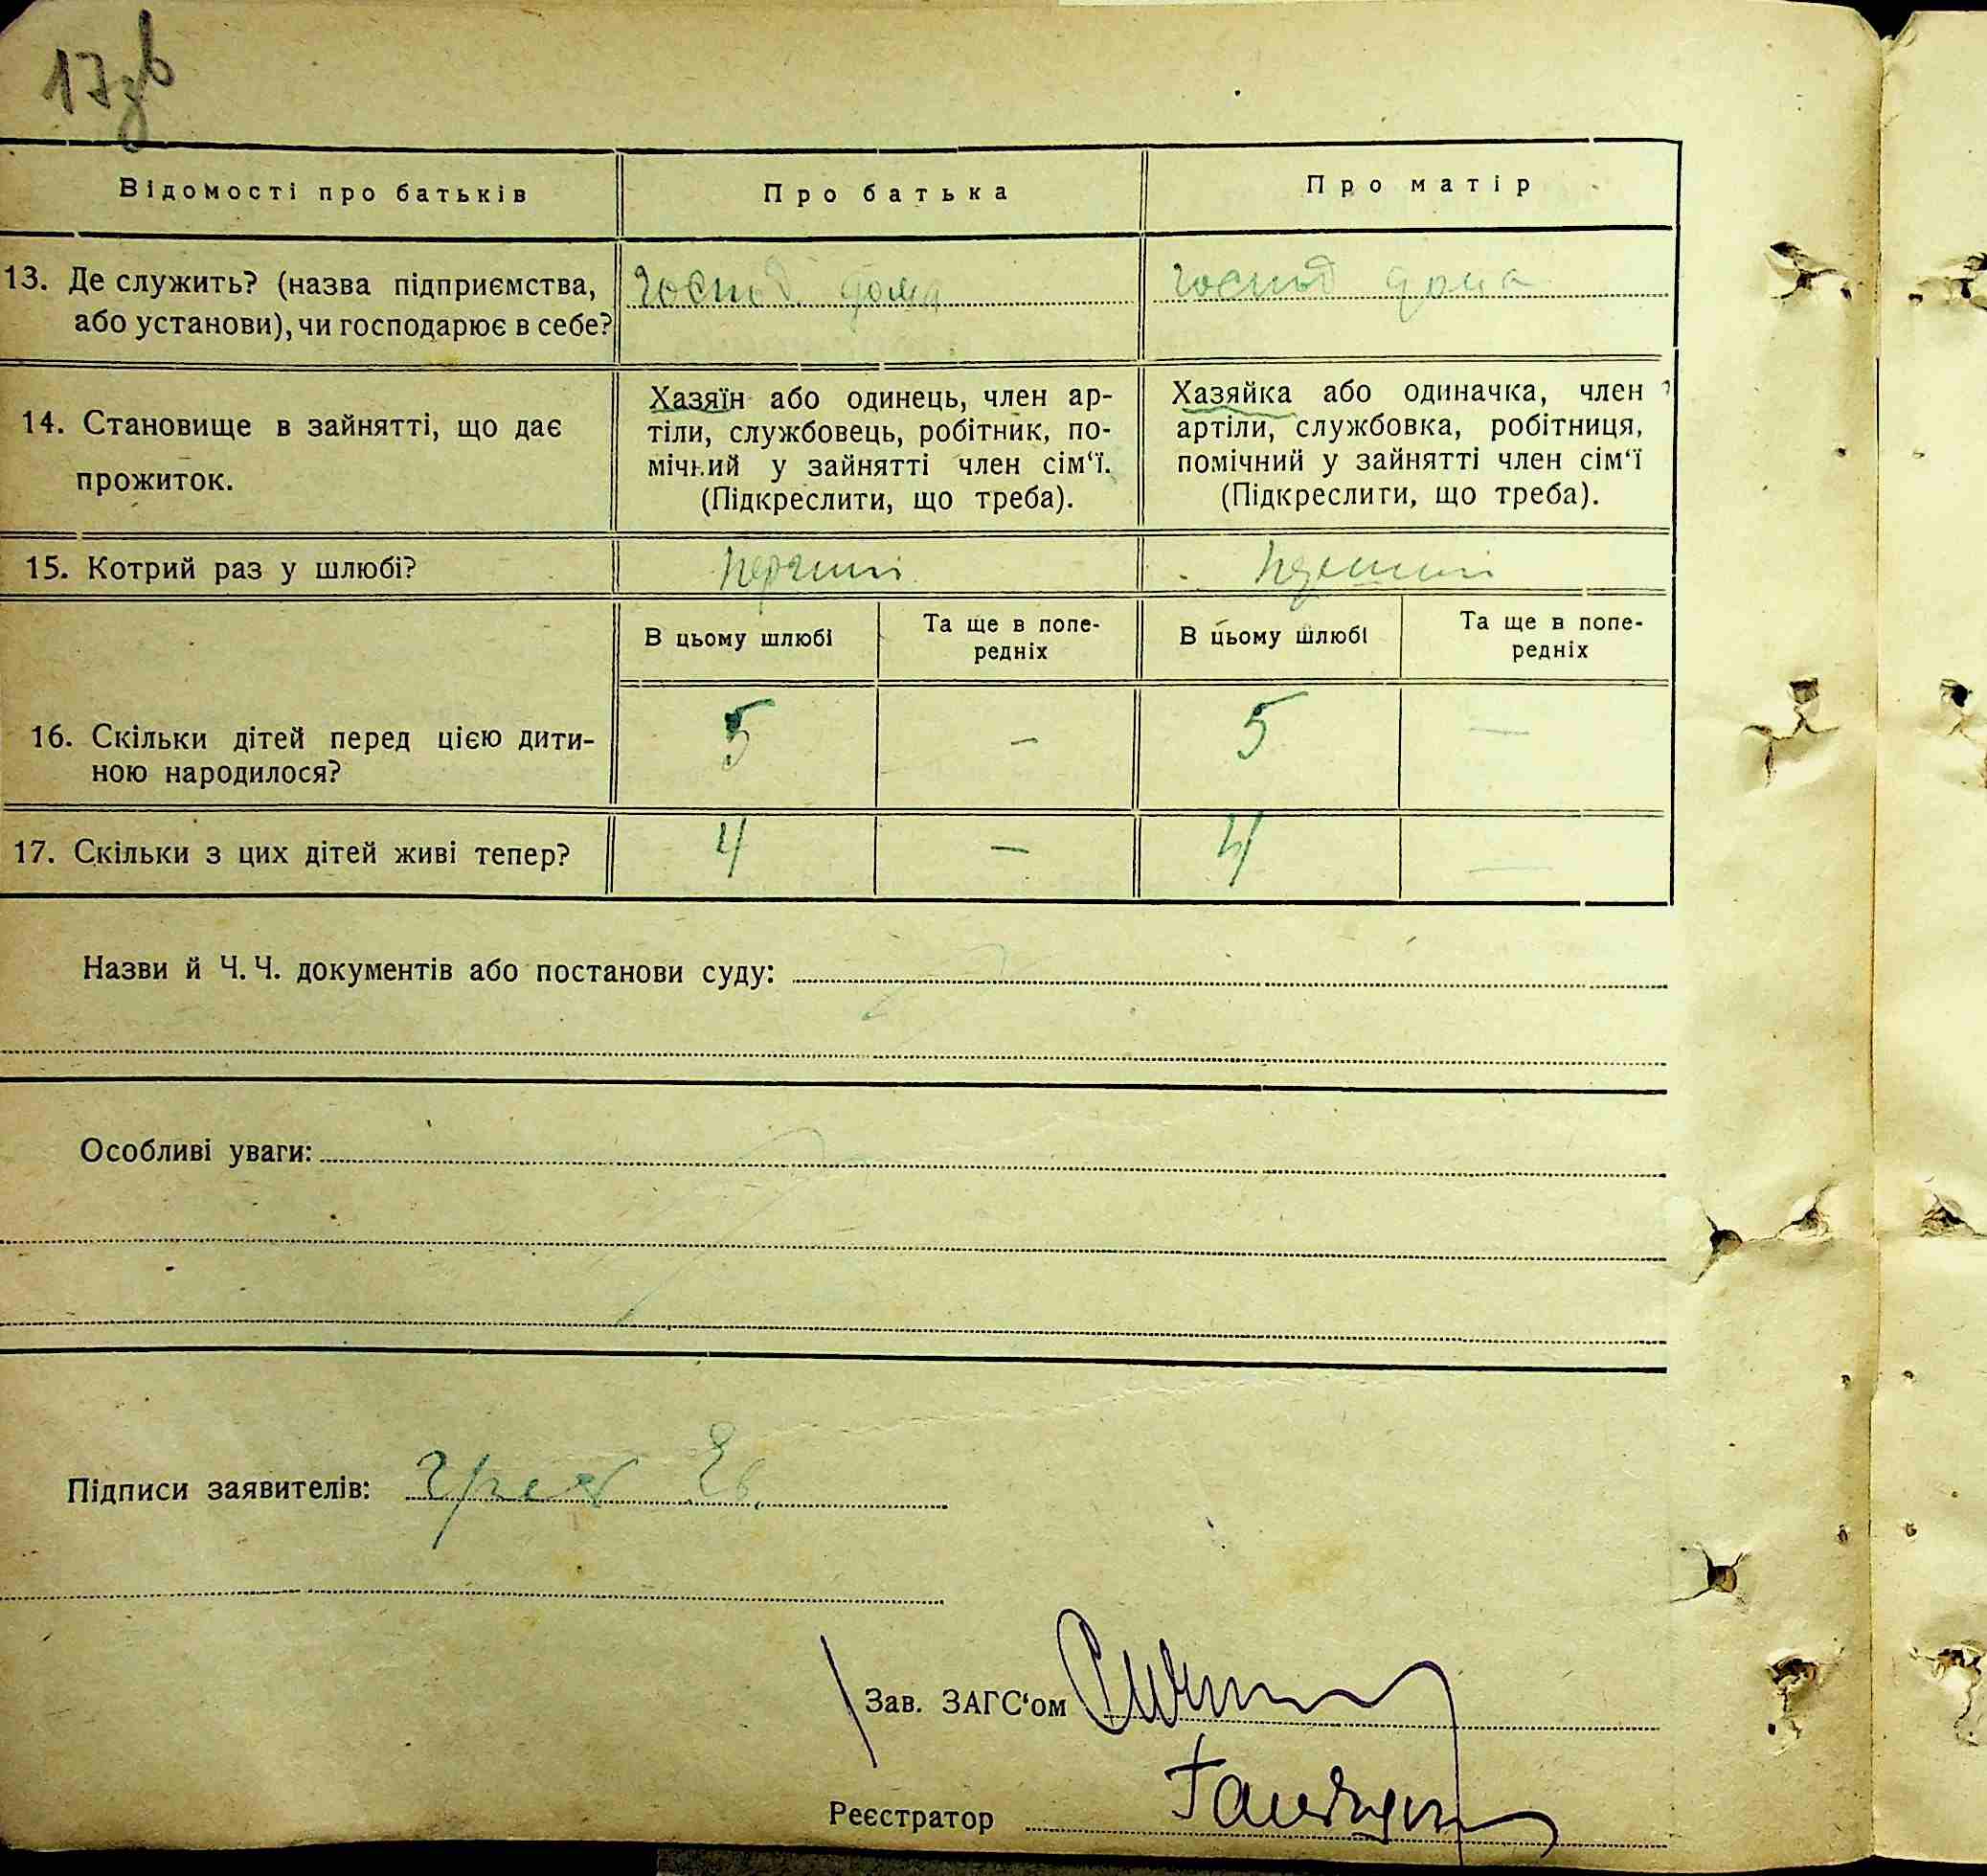 17зв
Відомості про батьків
Про батька
Про матір
13. Де служить? (назва підприємства,
або установи), чи господарює в себе?
господ. дома
господ дома
14. Становище в зайнятті, що дає
прожиток.
Хазяїн або одинець, член ар-
тіли, службовець, робітник, по-
мічний у зайнятті член сім‘ї.
(Підкреслити, що треба).
Хазяйка або одиначка, член
артіли, службовка, робітниця,
помічний у зайнятті член сім‘ї
(Підкреслити, що треба).
15. Котрий раз у шлюбі?
перший
перший
В цьому шлюбі
Та ще в попе-
редніх
В цьому шлюбі
Та ще в попе-
редніх
16. Скільки дітей перед цією дити-
ною народилося?
5
–
5
–
17. Скільки з цих дітей живі тепер?
4
–
4
–
Назви й Ч. Ч. документів або постанови суду:
Особливі уваги:
Підписи заявителів:
Зав. ЗАГС‘ом
Реєстратор